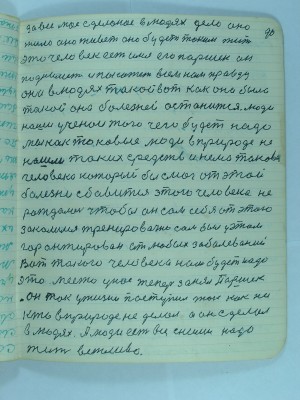 за вас мое сделаное в людях дело оно 90
жило оно живет оно будет таким жить
это человек ест имя его паршек он
подымает и покажет всем нам правду
они в людях такой вот как она была
такой она болезней останится. люди
наши ученом того чего будет надо
мы как таковые люди в природе не
нашли таких средств и нема такова
человека который бы смог от этой
болезни сбавится этого человека не
рождалось чтобы он сам себя от этого
закалил тренировано сам был в этом
гарантирован от любых заболеваний
Вот такого человека нам будет надо
это место у нас теперь занял Паршек
он так у жизни поступил как как ни
кто в природе не делал а он сделал
в людях. А люди ест вси с ними надо
жит ветливо.